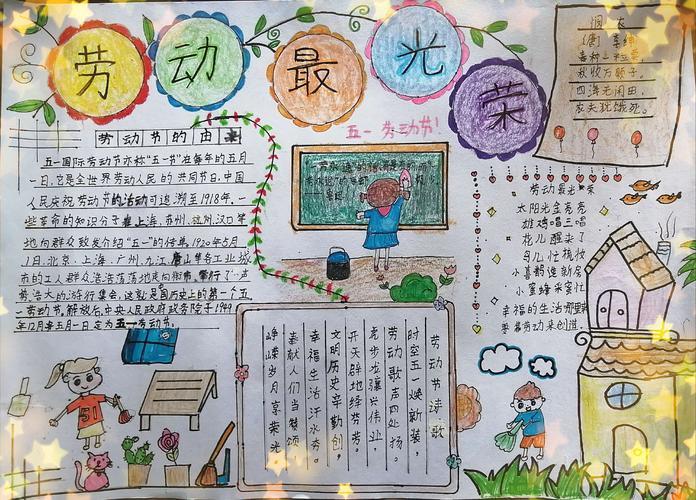 劳动最光荣
劳动节的由来
五一国际劳动节亦称"五一节"在每年的五月
一日,它是全世界劳动人民的共同节日,中国
人民庆祝劳动节的活动可追溯至1918年,一
些革命的知识分子在上海,苏州,汉口等
地向群众散发介绍"五一"的传单,1920年5月
1日,北京,上海,广州,九江,唐山等各工业城
市的工人群众浩浩荡荡地走向街市,举行了一声
势浩大的游行集会,这就是中国历史上的第一个五
一劳动节,解放后,中央人民政府政务院于1949
年12月将五月一日定为五一劳动节。
五一劳动节!
悯农
(唐)李绅
春种一粒粟,
秋收万颗子,
四海无闲田,
农夫犹饿死。
劳动最光荣
太阳光金亮亮
雄鸡唱三唱
花儿醒来了
鸟儿忙梳妆
小喜鹊造新房
小蜜蜂采蜜忙
幸福的生活哪里来
要靠劳动来创造
劳动节诗歌
时空五一焕新装,
劳动歌声四处扬。
虎步龙骧兴伟业,
开天辟地绎芬芳。
文明历史辛勤创,
幸福生活汗水夯。
奉献人们当赞颂
峥嵘岁月享荣光
51